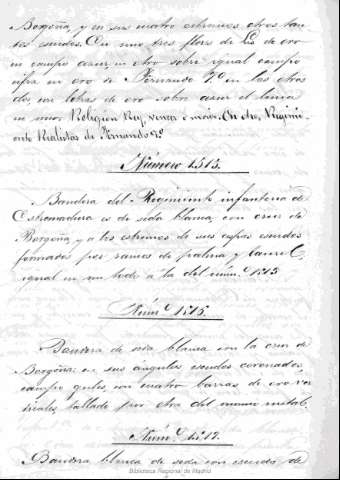 Borgoña, y en sus cuatro estremos, otros tan-
tos escudos. En uno tres flores de Lis de oro
en campo azur, en otro sobre igual campo
cifra en oro de Fernando 7º en los otros
dos con letras de oro sobre azur el lema
en uno, Religion Rey, vencer o morir. En otro, Regimi-
ento Realistas de Fernando 7º
Número 1513.
Bandera del Regimiento infanteria de
Estremadura es de seda blanca, con cruz de
Borgoña, y a los estremos de sus aspas escudos
formados por ramos de palma y laurel,
igual en un todo a la del núm.º 1513
Núm.º 1515.
Bandera de seda blanca con la cruz de
Borgoña: en sus ángulos escudos coronados,
campo gules, con cuatro barras de oro ver-
ticales, fallado por otra del mismo metal.
Núm.º 1517.
Bandera blanca de seda con escudo de
Biblioteca Regional de Madrid